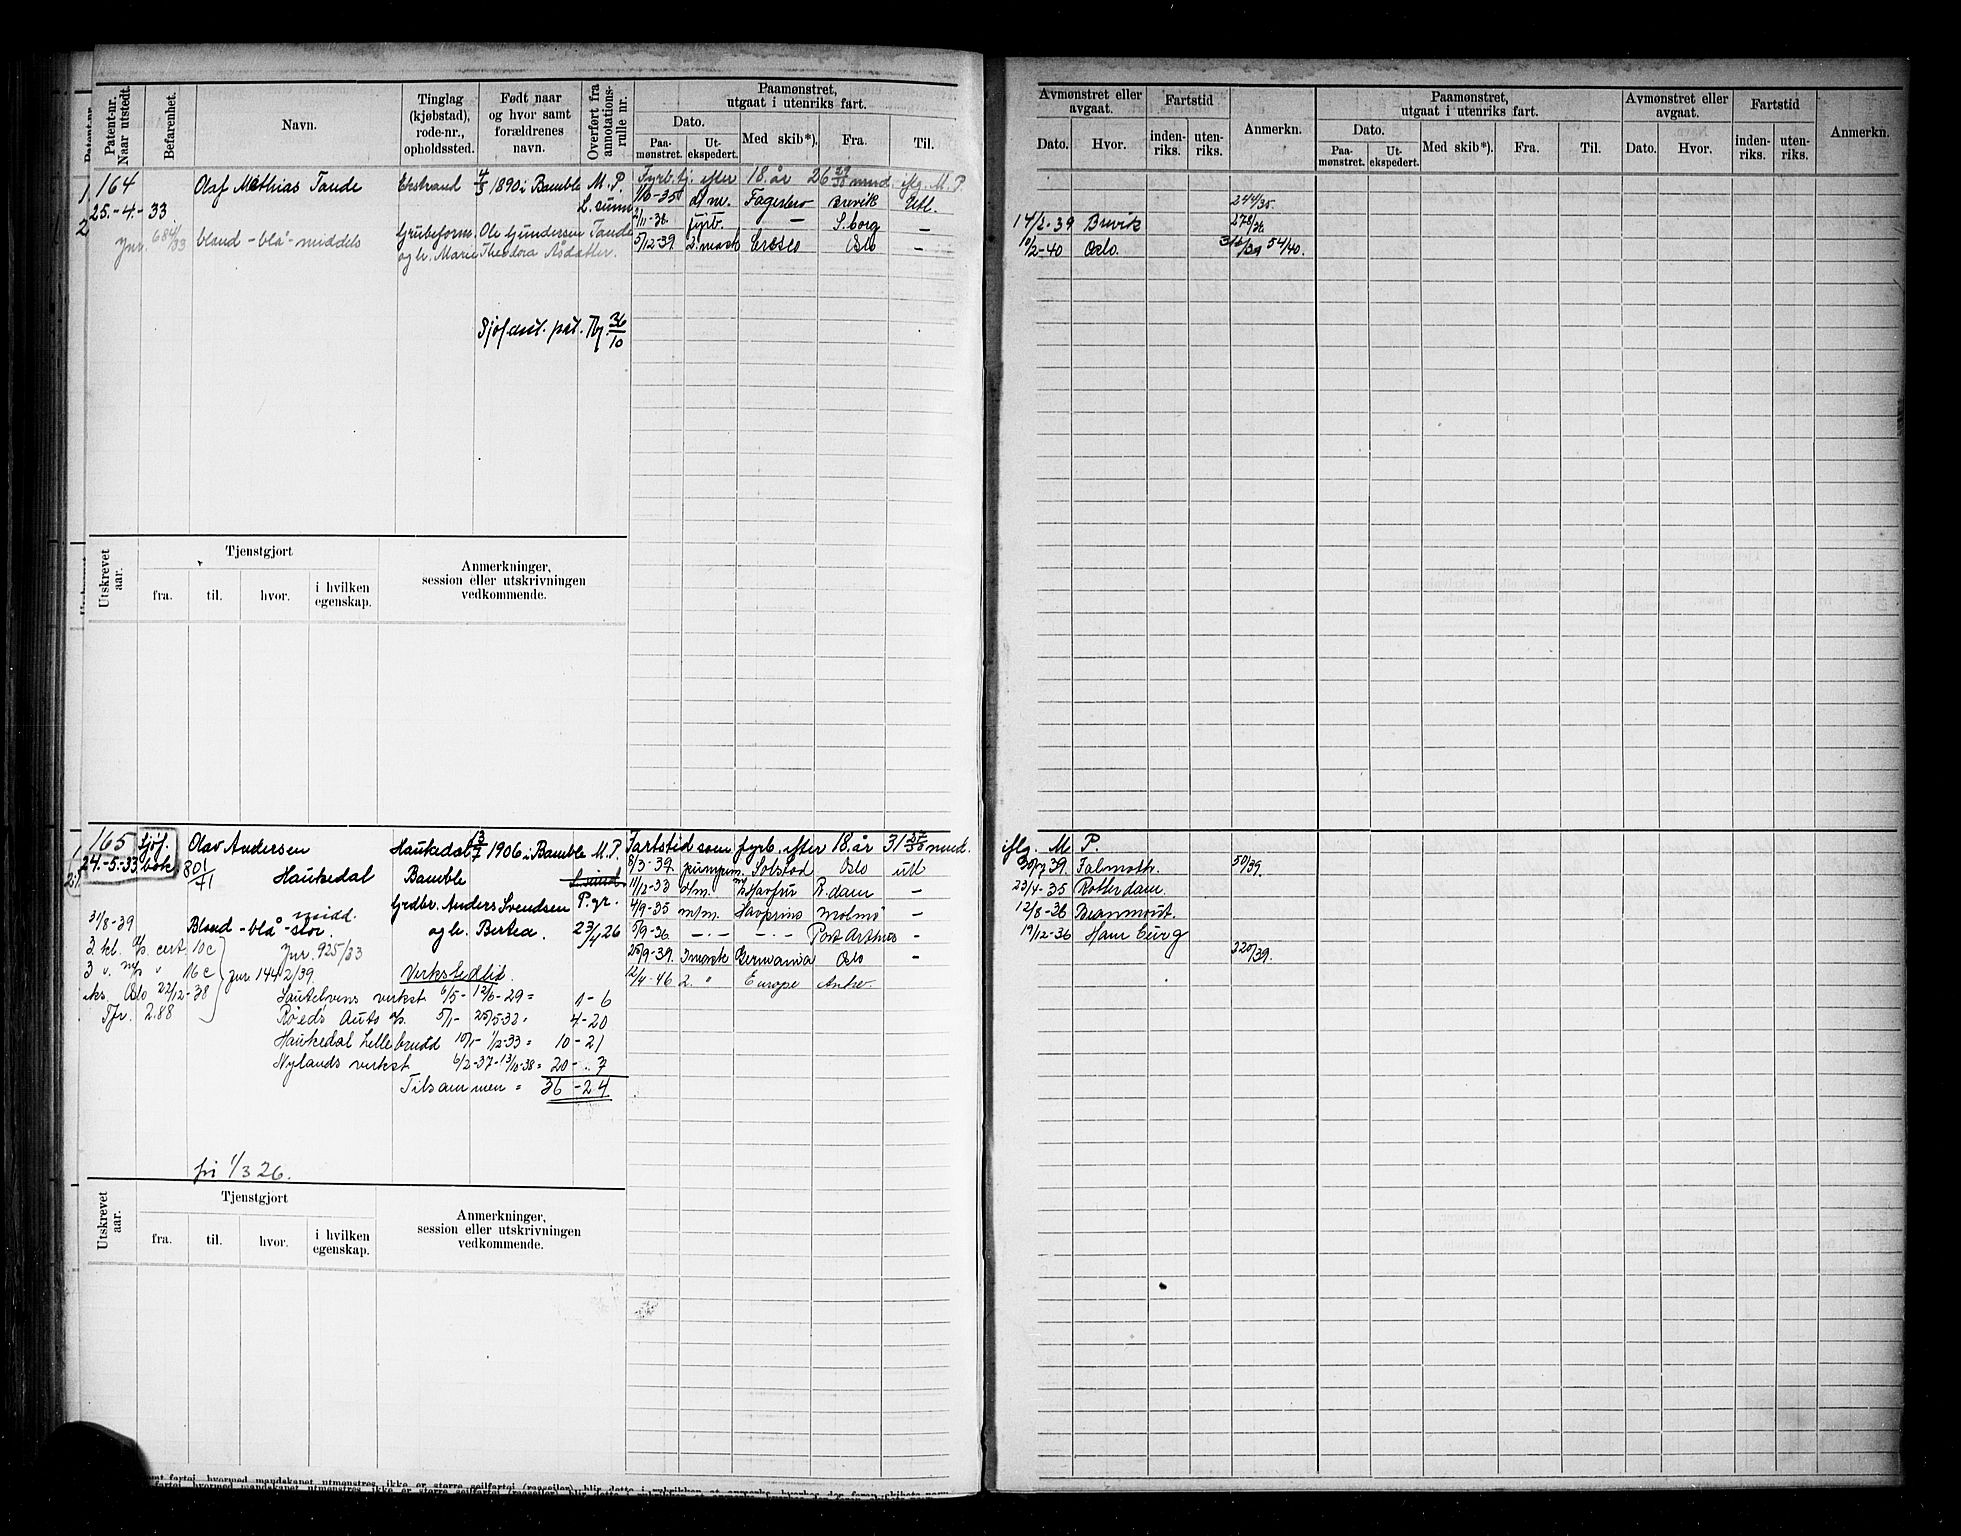 Patent-nr. Naar utstedt. Befarenhet. Navn. Tinglag (kjøbstad), rode-nr., opholdssted. Født naar og hvor samt forældrenes navn. Overført fra annotations-rulle nr.
Paamønstret, utgaat i utenriks fart.
Dato. Paa-mønstret. Ut-ekspedert. Med skib*). Fra. Til.
164 Olaf Mathias Tande Ekstrand 4/5 1890 i Bamble M. P. Fyrb. tj. efter 18. år 26 29/30 mnd. iflg. M. P.
25.-4.-33 L. sund 1/10-35 d/m. Fagersbro Brevik Utl.
Grubeform. Ole Gundersen Tande 2/11-38. fyrb. — S. borg —
Jnr. 684/33 blond - blå - middels og h. Marie Theodora Åsdatter. 5/12-39. 2. mask Oslo —
Sjøf. 36/10
Utskrevet aar. Tjenstgjort
fra. til. hvor. i hvilken egenskap.
Anmerkninger, session eller utskrivningen vedkommende.
165 Sjøf. Olav Andersen Haukedal 13/7 1906 i Bamble M. P. Fartstid som fyrb. efter 18. år 31 27/30 mnd.
24.-5.-33 bok. 801/71 Haukedal Bamble L. sund 8/3-39. pumpem. Solstad Oslo utl
Grdbr. Anders Svendsen P. gr. 11/2-33 d/m. Havfru R. dam —
31/8-39 midd. 4/9-35 m/m. Havprins Malmö —
Blond - blå - stor. og h. Bertea. 23/4 26 5/9-36 —·— —·— Port Arthur —
3. kl. cert. 10c Jnr. 925/33 25/9-39. 3 mask Germania Oslo —
3 v. 16c Jnr 1442/39. Verkstedtid. 12/4-46 2. " Europe Antw.
eks. Oslo 22/12-38 verkst 6/5- 12/6-29 = 1-6
Tfr. 288 Røeds Auto 5/1- 25/5-32. 4-20
Haukedal Lillebrudd 10/1- 1/12-33 = 10-21
Nylands verkst 6/2-37-13/10-38 = 20-..7
Tilsammen = 36-24
fri 1/3 26.
Utskrevet aar. Tjenstgjort
fra. til. hvor. i hvilken egenskap.
Anmerkninger, session eller utskrivningen vedkommende.
Avmønstret eller avgaat. Fartstid Anmerkn. Paamønstret, utgaat i utenriks fart. Avmønstret eller avgaat. Fartstid Anmerkn.
Dato. Hvor. inden-riks. uten-riks. Dato. Paa-mønstret. Ut-ekspedert. Med skib*). Fra. Til. Dato. Hvor. inden-riks. uten-riks.
244/35
14/2-39 Brevik 278/38
10/2-40 Oslo. 54/40.
iflg. M. P.
39. Falmoth. 50/39.
23/4-35 Rotterdam.
12/8-36 Beaumont.
19/12-36 Hamburg
220/39.